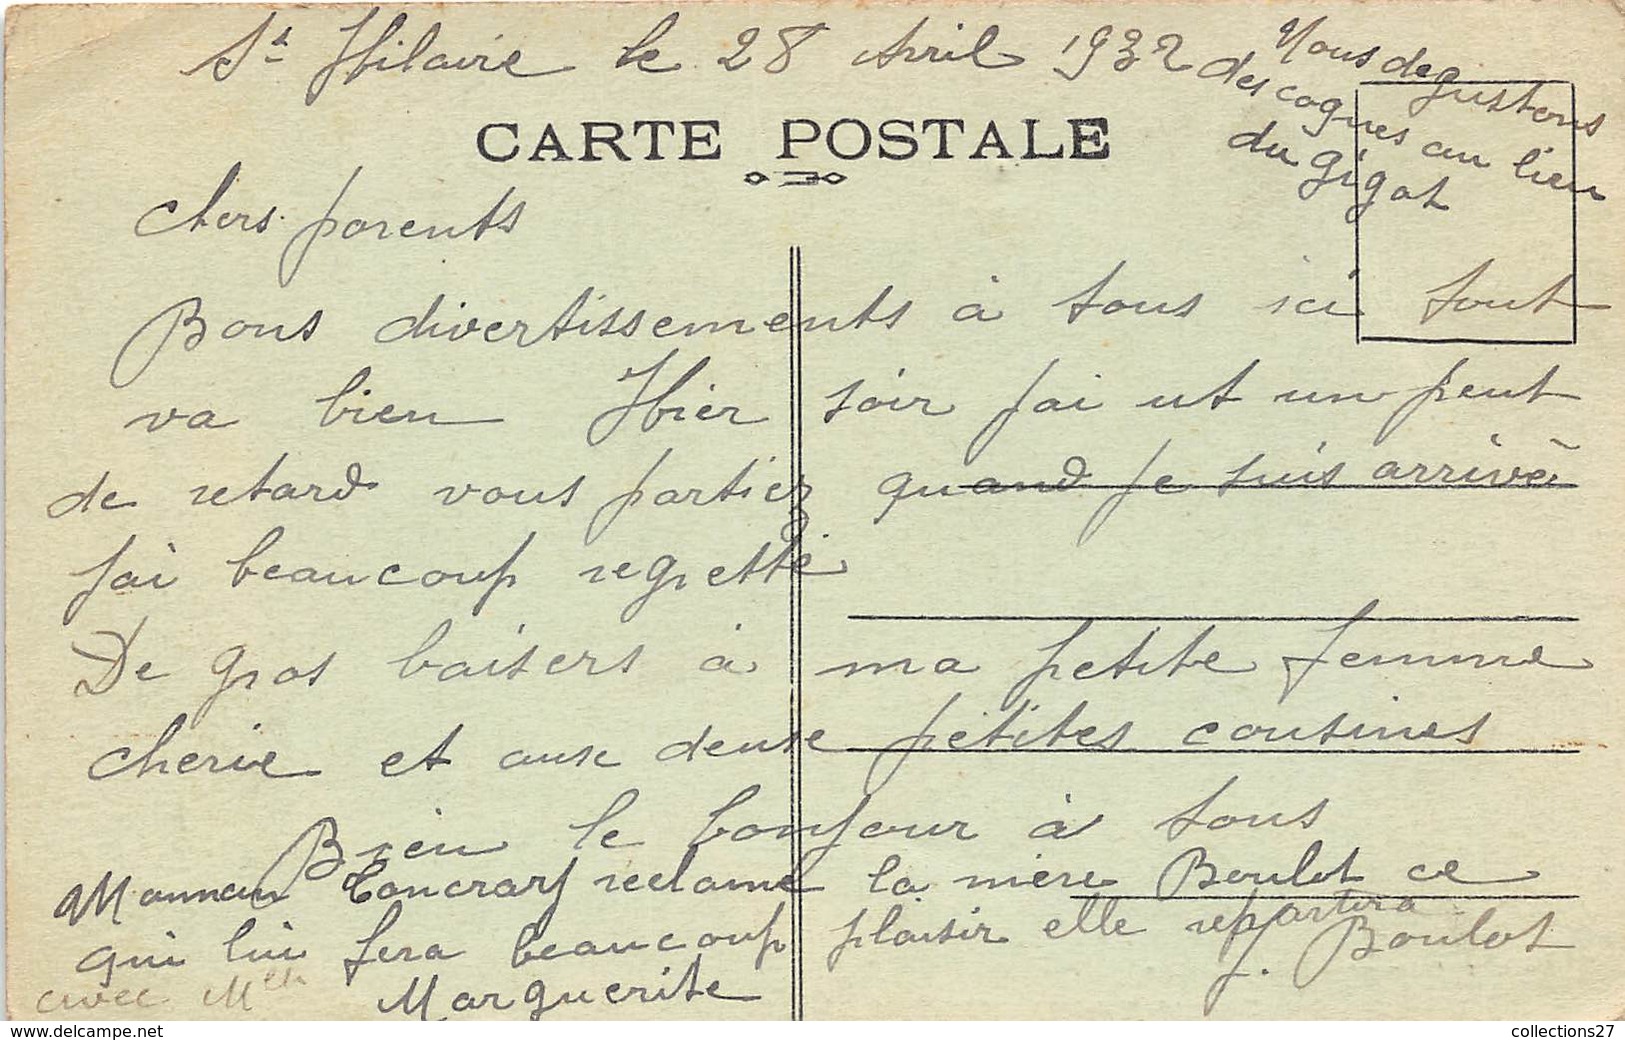 St Hilaire le 28 Avril 1932
Nous degustons
des coques au lieu
du gigot
CARTE POSTALE
Chers parents
Bons divertissements à tous ici tout
va bien Hier soir jai ut un peut
de retard vous partiez quand je suis arrivé
jai beaucoup regretté
De gros baisers à ma petite femme
cherie et aux deux petites cousines
Bien le bonjour à tous
Maman reclame la mère Boulot ce
qui lui fera beaucoup plaisir elle repartira
avec Melle Marguerite
J. Boulot
www.delcampe.net
collections27